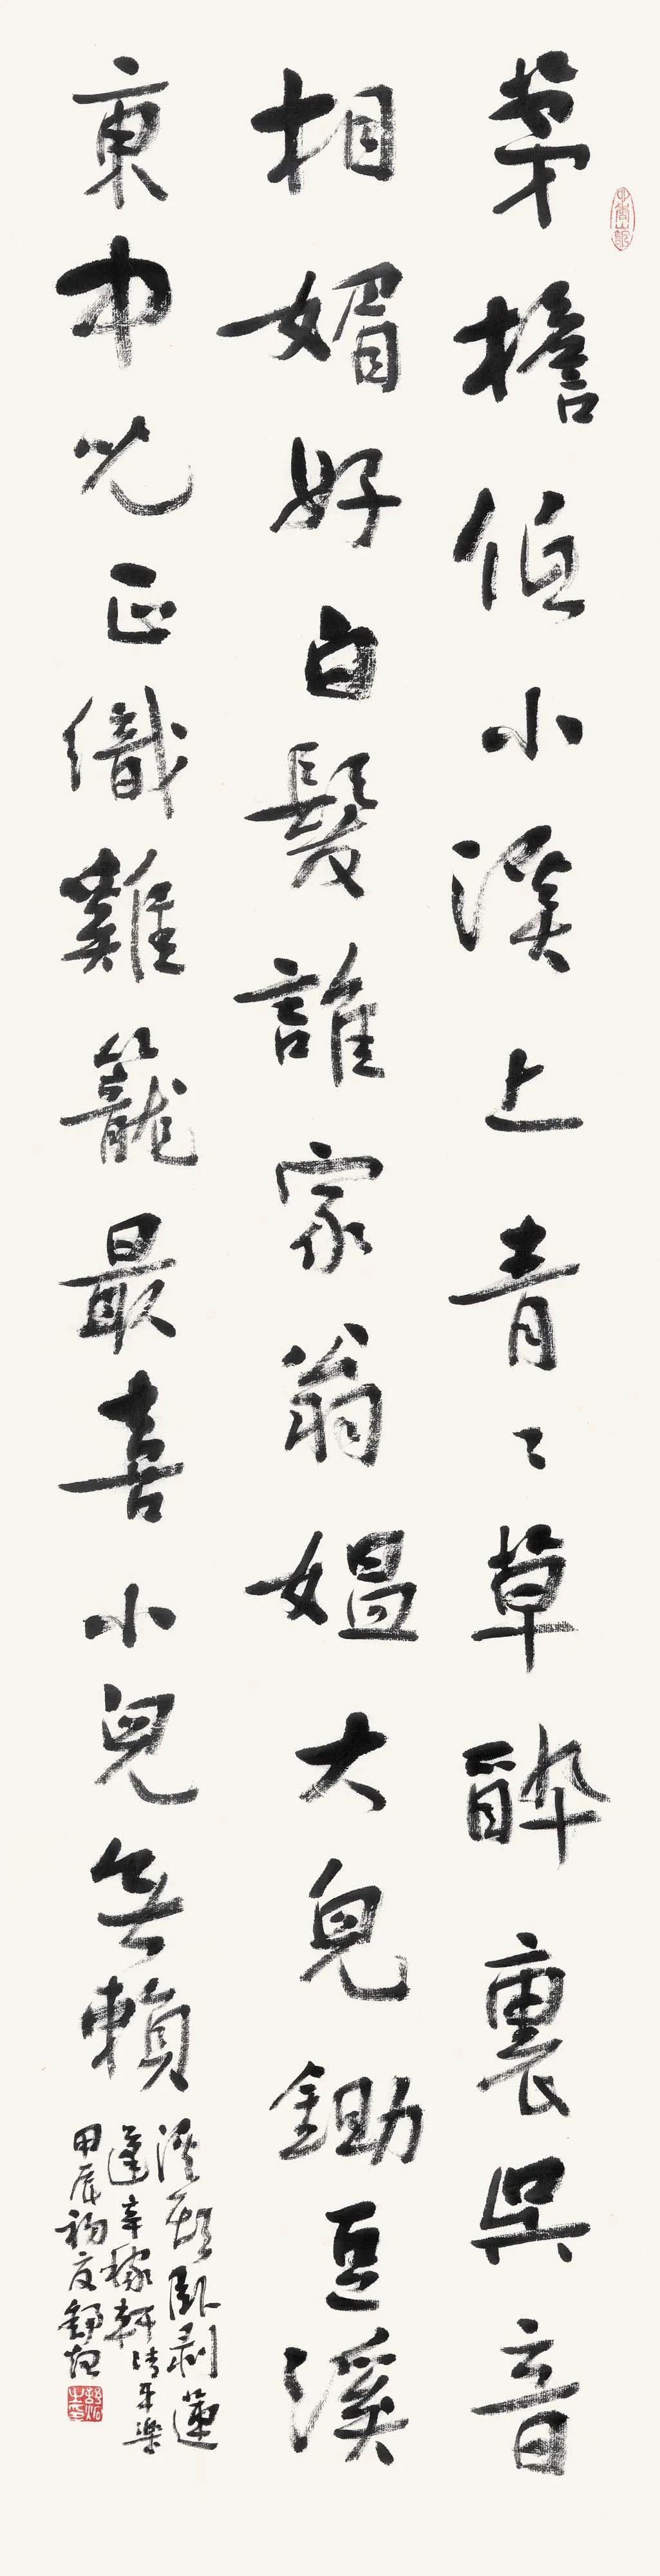 茅檐低小溪上青々草醉裏吳音
相媚好白髮誰家翁媼大兒鋤豆溪
東中兒正織雞籠最喜小兒無賴
溪頭臥剝蓮
蓬辛稼軒清平樂
甲辰初夏